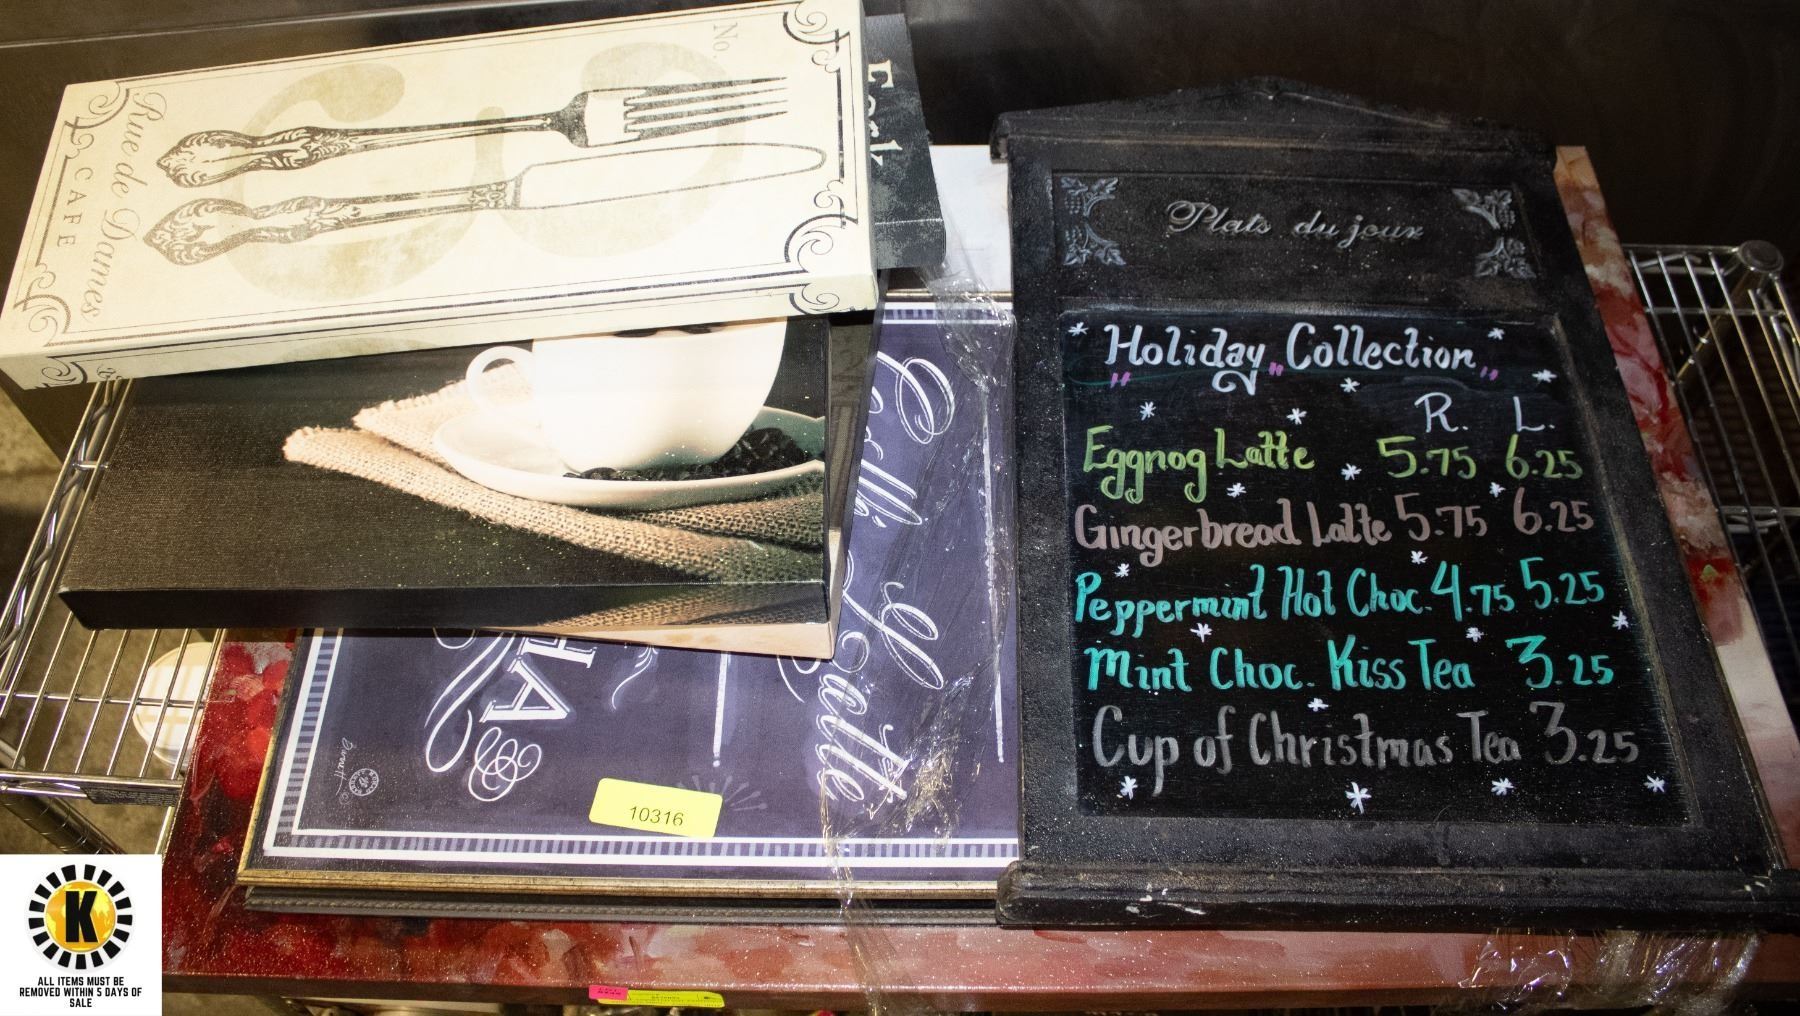 No.
Rue de Dames
CAFE
Fork
Latte
HA
10316
Plats du jour
"Holiday" Collection"
R. L.
Eggnog Latte 5.75 6.25
Gingerbread Latte 5.75 6.25
Peppermint Hot Choc. 4.75 5.25
Mint Choc. Kiss Tea 3.25
Cup of Christmas Tea 3.25
K
ALL ITEMS MUST BE
REMOVED WITHIN 5 DAYS OF
SALE